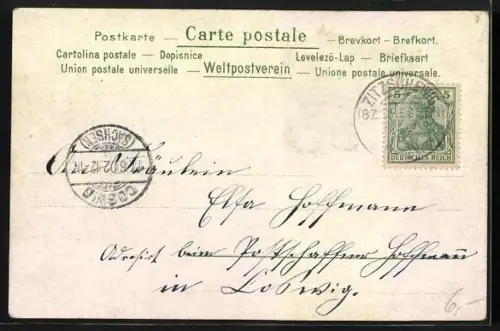 Postkarte — Carte postale — Brevkort – Brefkort.
Cartolina postale — Dopisnice Levelező-Lap — Briefkaart
Union postale universelle — Weltpostverein — Unione postale universale.
ZITZSCHEWIG
5 5
DEUTSCHES REICH
COSWIG
(SACHSEN)
.6.02.12-1N.
Fräulein
Elsa Hoffmann
Adresirt beim Postschaffner Hoffmann
in Coswig.
6,-